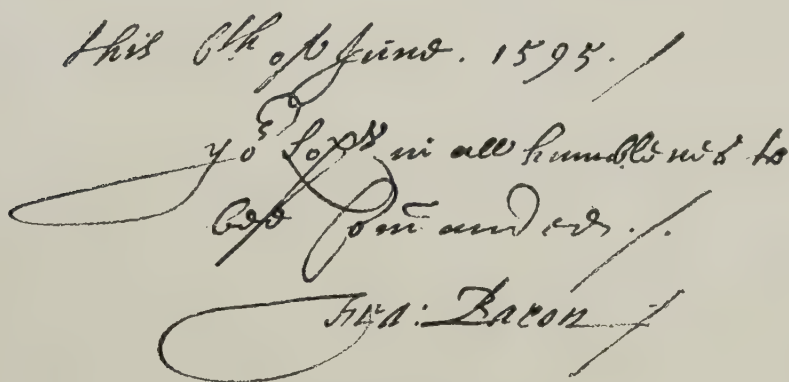 this 6th of June. 1595. /
yor Lops in all humblenes to
bee Com̄anded. /.
Fra: Bacon /